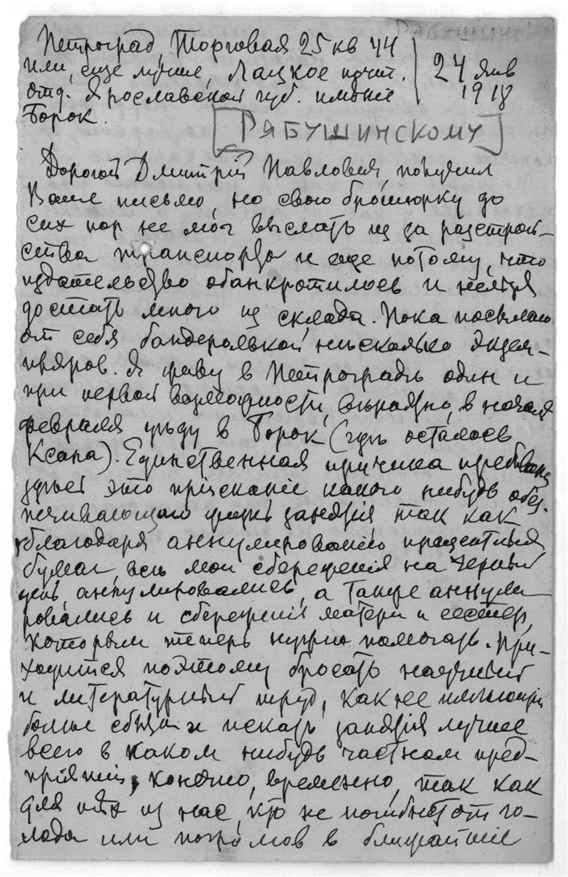 Петроград, Торговая 25 кв 44
или, еще лучше, Лацкое почт.
отд. Ярославской губ. имѣніе
Борок.
24 янв
1918
[РЯБУШИНСКОМУ]
Дорогой Дмитрій Павлович, получил
Ваше письмо, но свою брошюрку до
сих пор не мог выслать из за разстрой-
ства транспорта и еще потому, что
издательство обанкротилось и нельзя
достать много из склада. Пока посылаю
от себя бандеролькой нѣсколько экзем-
пляров. Я живу в Петроградѣ один и
при первой возможности, вѣроятно, в началѣ
февраля уѣду в Борок (гдѣ осталась
Ксана). Единственная причина пребыванія
здѣсь это пріисканіе какого нибудь обез-
печивающаго жизнь занятія так как
благодаря аннулированію процентных
бумаг всѣ мои сбереженія на черный
день аннулировались, а также аннули
ровались и сбереженія матери и сестер,
которым теперь нужно помогать. При-
ходится поэтому бросать научный
и литературный труд, как не имѣющій
болѣе сбыта и искать занятія лучше
всего в каком нибудь частном пред-
пріятіи, конечно, временно, так как
для тѣх из нас, кто не погибнет от го-
лода или погромов в ближайшіе